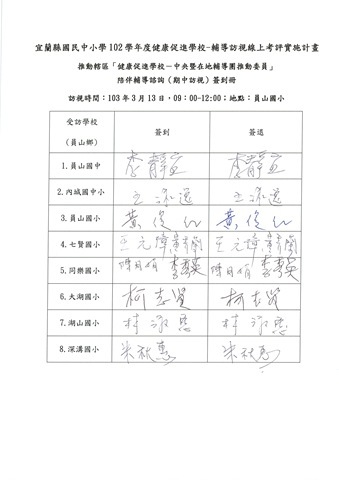 宜蘭縣國民中小學102學年度健康促進學校-輔導訪視線上考評實施計畫
推動轄區「健康促進學校－中央暨在地輔導團推動委員」
陪伴輔導諮詢（期中訪視）簽到冊
訪視時間：103年3月13日，09：00-12:00；地點：員山國小
受訪學校
（員山鄉） 簽到 簽退
1.員山國中 李靜宜 李靜宜
2.內城國中小
3.員山國小 黃俊仁 黃俊仁
4.七賢國小 王元璋
5.同樂國小
6.大湖國小 柯志賢 柯志賢
7.湖山國小
8.深溝國小 朱秋惠 朱秋惠